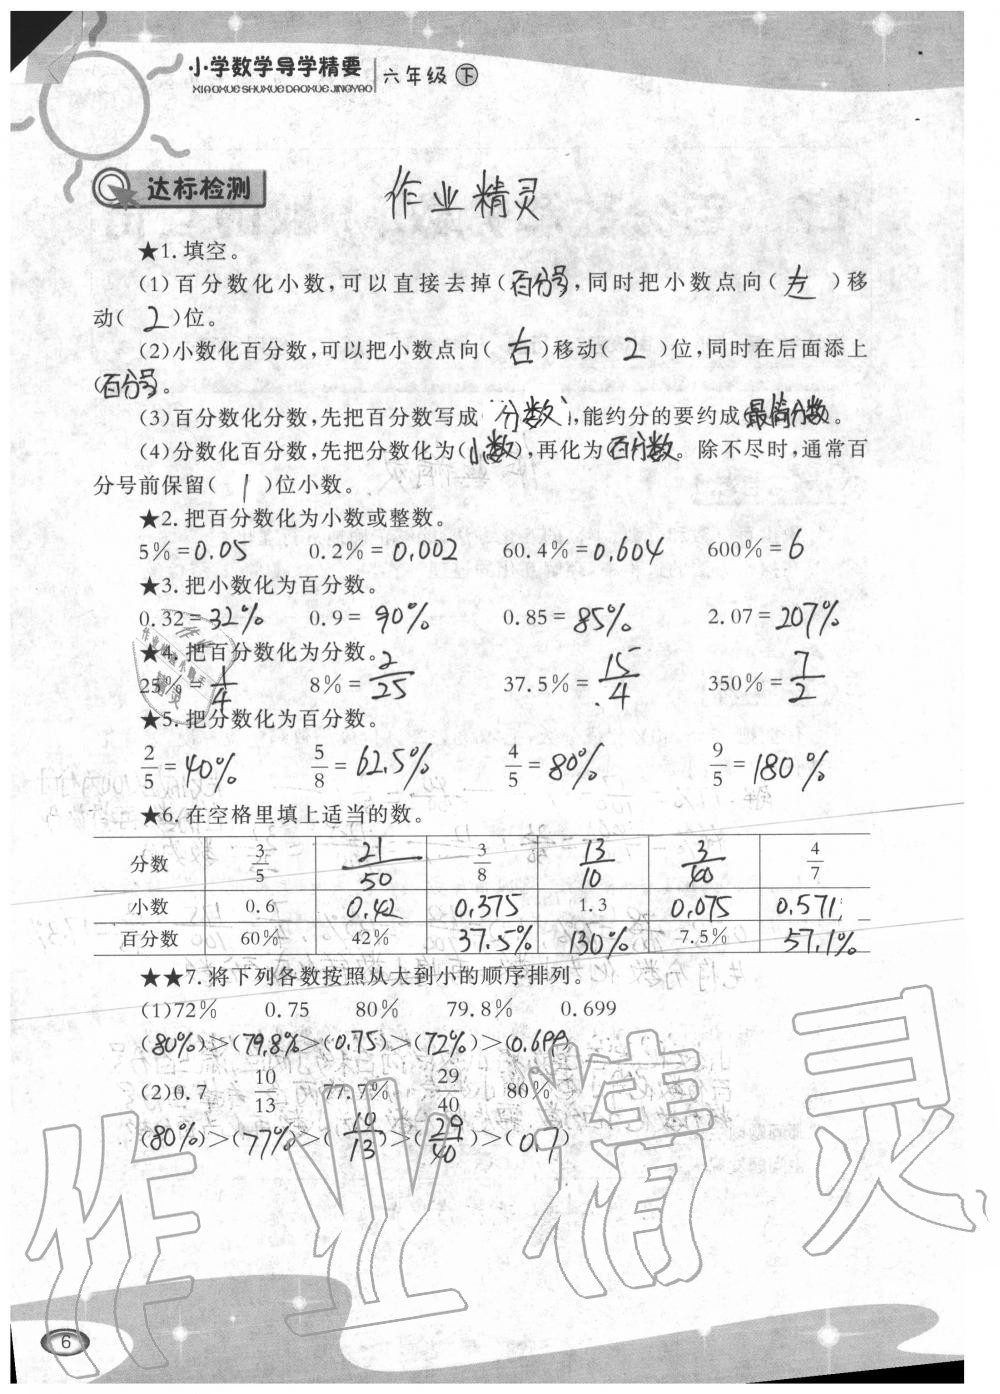 小学数学导学精要 六年级 下
XIAOXUE SHUXUE DAOXUE JINGYAO
达标检测
作业精灵
★1.填空。
(1)百分数化小数,可以直接去掉(百分号),同时把小数点向(左)移
动(2)位。
(2)小数化百分数,可以把小数点向(右)移动(2)位,同时在后面添上
(百分号)。
(3)百分数化分数,先把百分数写成(分数),能约分的要约成(最简分数)。
(4)分数化百分数,先把分数化为(小数),再化为(百分数)。除不尽时,通常百
分号前保留(1)位小数。
★2.把百分数化为小数或整数。
5%=0.05 0.2%=0.002 60.4%=0.604 600%=6
★3.把小数化为百分数。
0.32=32% 0.9=90% 0.85=85% 2.07=207%
★4.把百分数化为分数。
25%=1/4 8%=2/25 37.5%=15/4 350%=7/2
★5.把分数化为百分数。
2/5=40% 5/8=62.5% 4/5=80% 9/5=180%
★6.在空格里填上适当的数。
分数 3/5 21/50 3/8 13/10 3/40 4/7
小数 0.6 0.42 0.375 1.3 0.075 0.571
百分数 60% 42% 37.5% 130% 7.5% 57.1%
★★7.将下列各数按照从大到小的顺序排列。
(1)72% 0.75 80% 79.8% 0.699
(80%)>(79.8%)>(0.75)>(72%)>(0.699)
(2)0.7 10/13 77.7% 29/40 80%
(80%)>(77%)>(10/13)>(29/40)>(0.7)
作业精灵
6